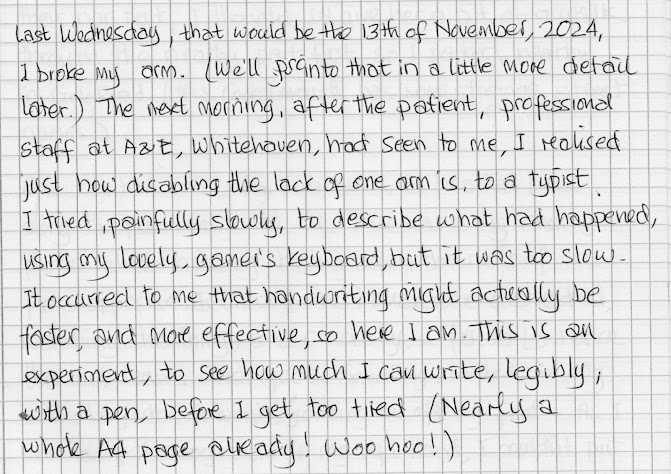 Last Wednesday, that would be the 13th of November, 2024,
I broke my arm. (We'll go into that in a little more detail
later.) The next morning, after the patient, professional
staff at A&E, Whitehaven, had seen to me, I realised
just how disabling the lack of one arm is, to a typist.
I tried, painfully slowly, to describe what had happened,
using my lovely, gamer's keyboard, but it was too slow.
It occurred to me that handwriting might actually be
faster, and more effective, so here I am. This is an
experiment, to see how much I can write, legibly,
with a pen, before I get too tired (Nearly a
whole A4 page already! Woo hoo!)